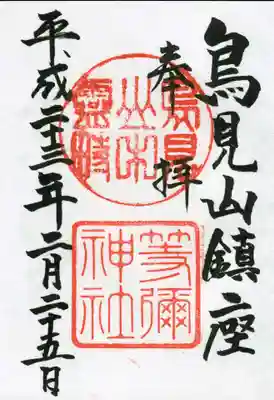 鳥見山鎮座
奉拝
鳥見
山中
靈畤
等彌
神社
平成二十三年二月二十五日